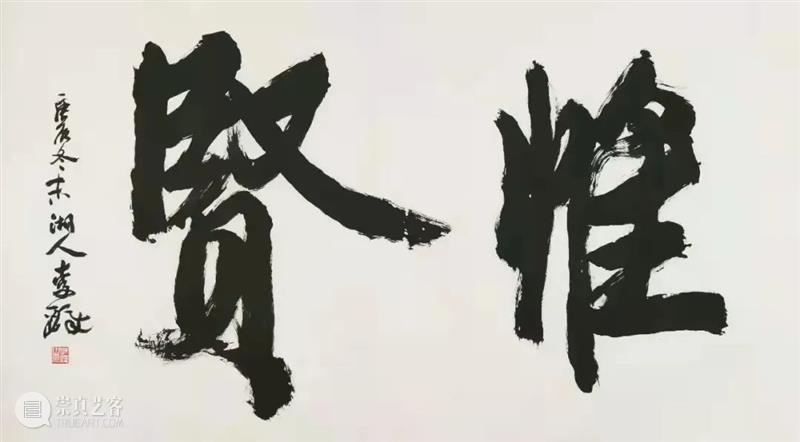 惟賢
庚辰冬末湖人李
崇真艺客
TRUEART.COM